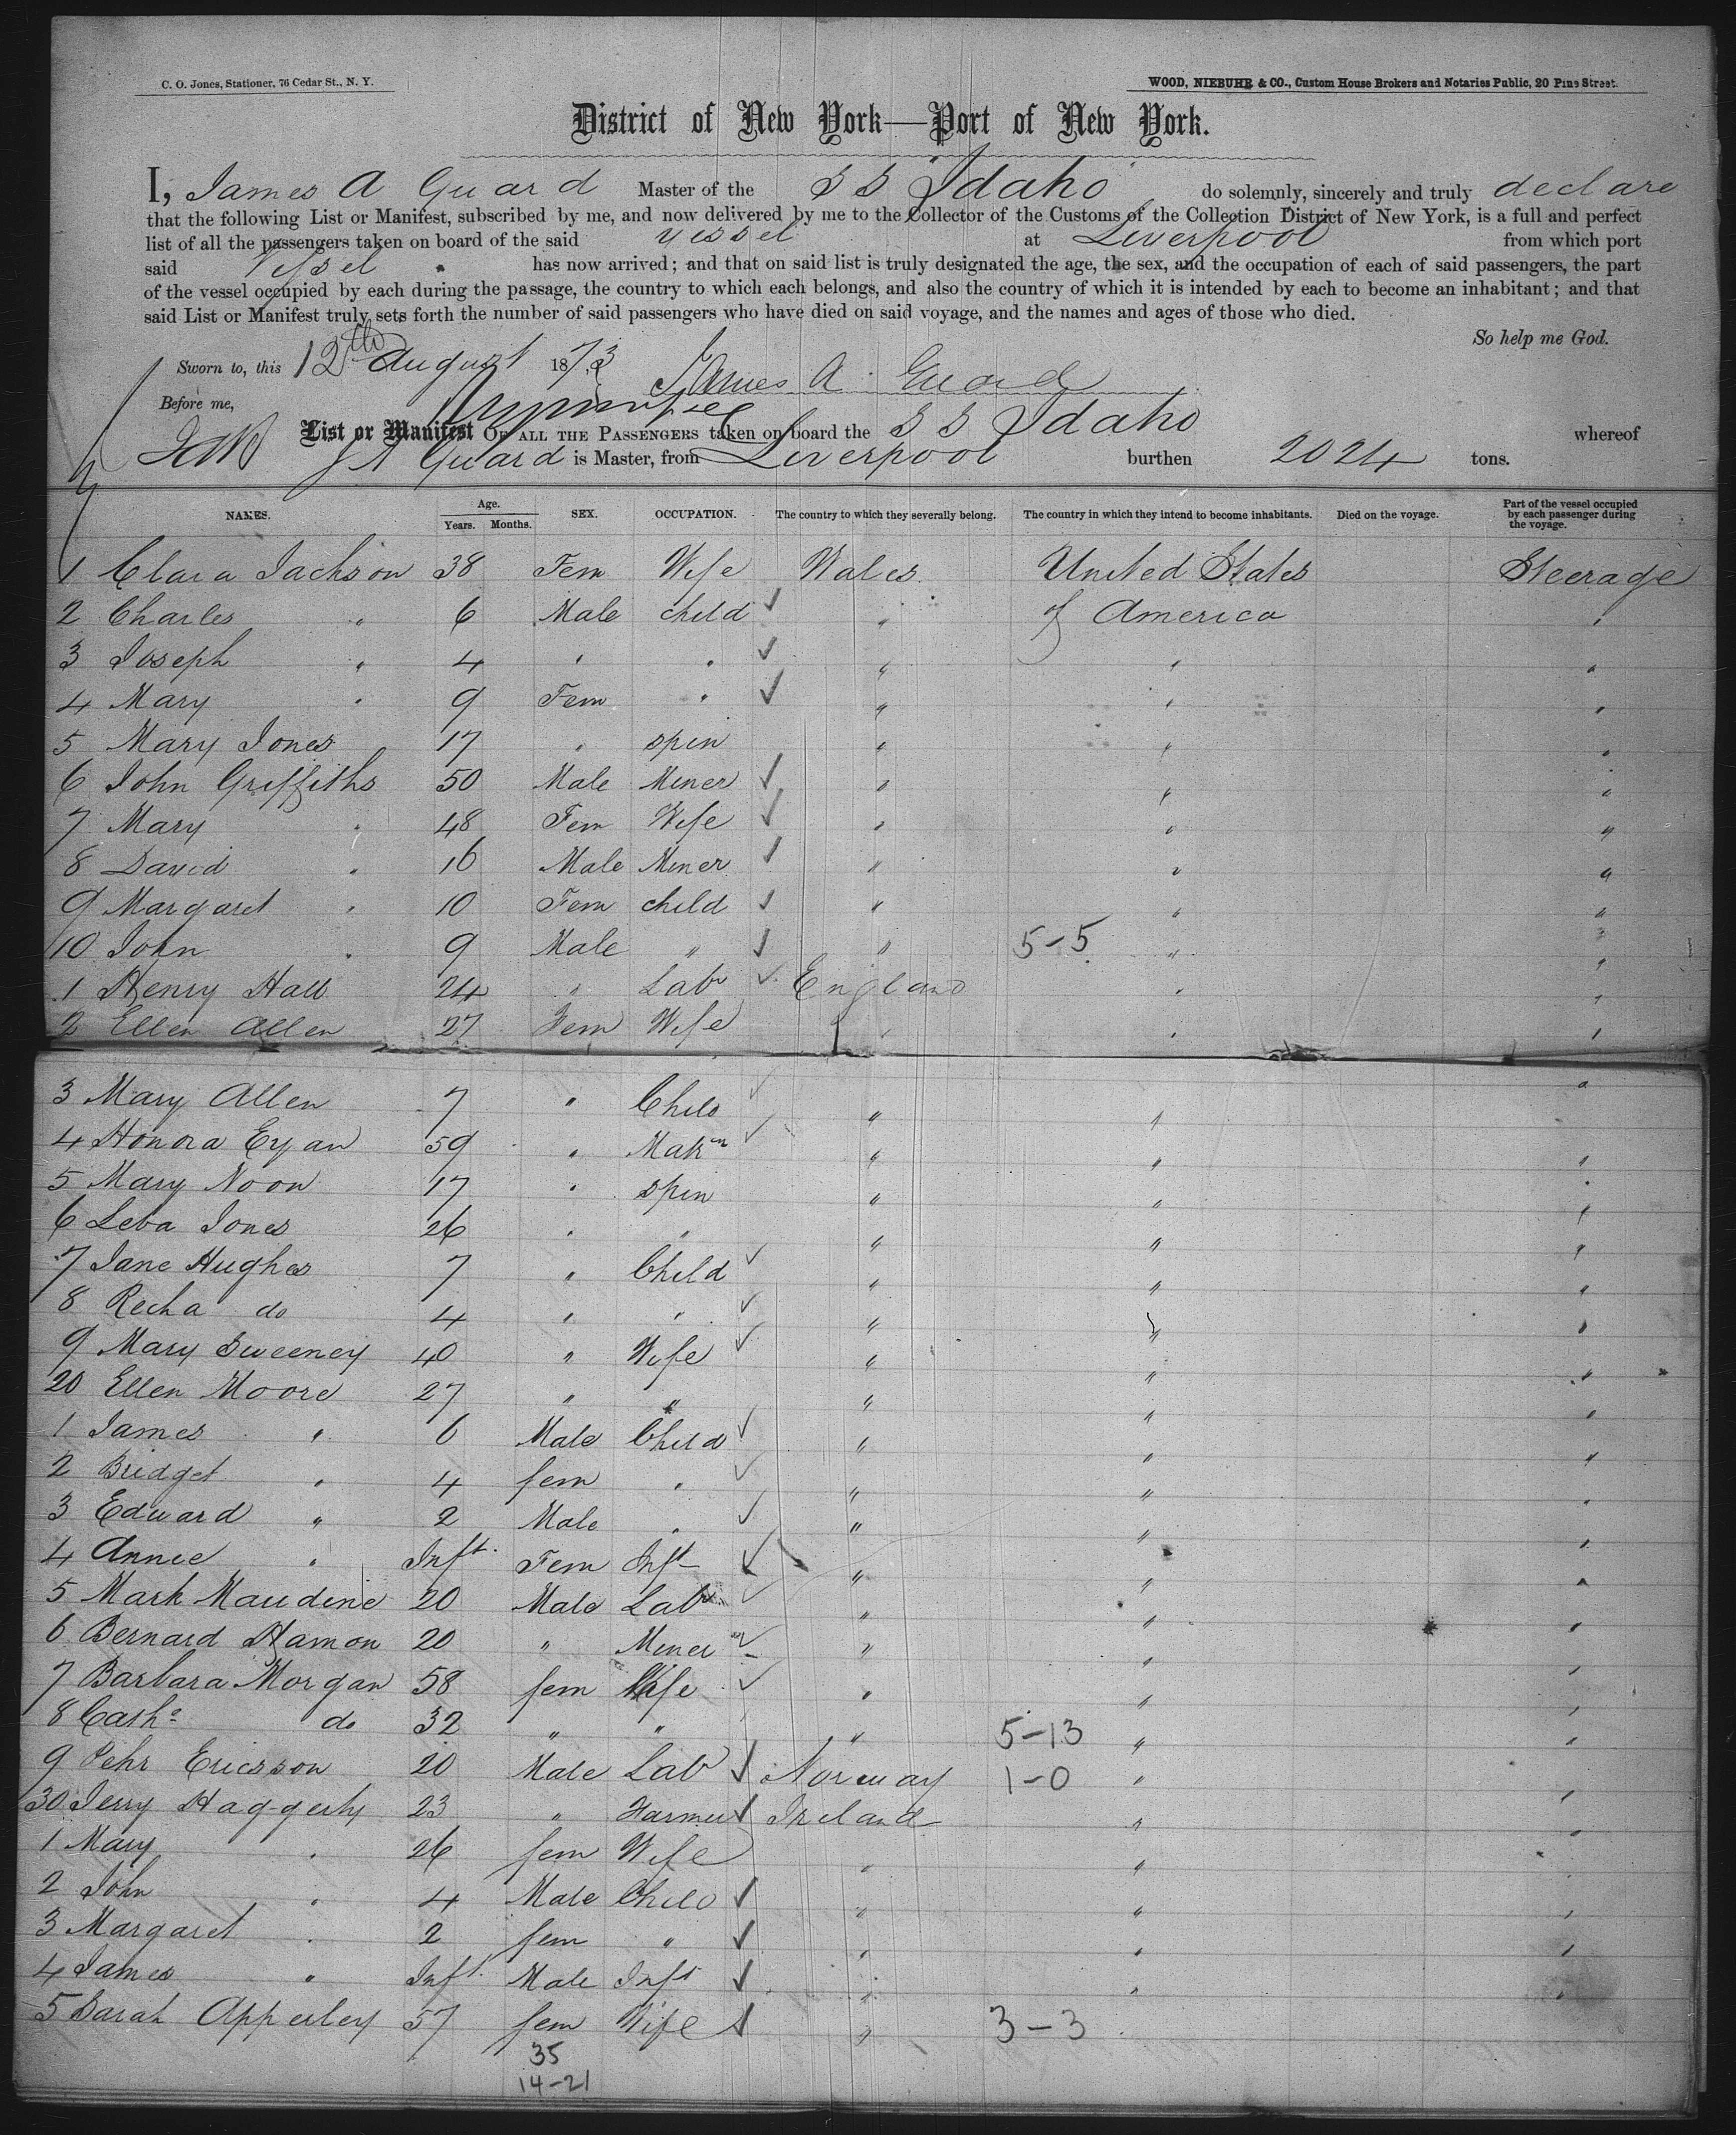 C. O. Jones, Stationer, 76 Cedar St., N. Y.
WOOD, NIEBUHR & CO., Custom House Brokers and Notaries Public, 20 Pine Street.
District of New York—Port of New York.
I, James A Guard Master of the S S Idaho do solemnly, sincerely and truly declare
that the following List or Manifest, subscribed by me, and now delivered by me to the Collector of the Customs of the Collection District of New York, is a full and perfect
list of all the passengers taken on board of the said vessel at Liverpool from which port
said Vessel has now arrived; and that on said list is truly designated the age, the sex, and the occupation of each of said passengers, the part
of the vessel occupied by each during the passage, the country to which each belongs, and also the country of which it is intended by each to become an inhabitant; and that
said List or Manifest truly sets forth the number of said passengers who have died on said voyage, and the names and ages of those who died.
So help me God.
Sworn to, this 12th August 1873 James A Guard
Before me,
List or Manifest OF ALL THE PASSENGERS taken on board the S S Idaho whereof
J A Guard is Master, from Liverpool burthen 2024 tons.
NAMES. Age. Years. Months. SEX. OCCUPATION. The country to which they severally belong. The country in which they intend to become inhabitants. Died on the voyage. Part of the vessel occupied by each passenger during the voyage.
1 Clara Jackson 38 Fem Wife Wales United States Steerage
2 Charles " 6 Male child ✓ " of America "
3 Joseph " 4 " " ✓ " " "
4 Mary " 9 Fem " ✓ " " "
5 Mary Jones 17 " spin " " "
6 John Griffiths 50 Male Miner ✓ " " "
7 Mary " 48 Fem Wife ✓ " " "
8 David " 16 Male Miner ✓ " " "
9 Margaret " 10 Fem child ✓ " " "
10 John " 9 Male " ✓ " 5-5 " "
1 Henry Hall 24 " Labr ✓ England " "
2 Ellen Allen 27 Fem Wife " " "
3 Mary Allen 7 " Child ✓ " " "
4 Honora Eyan 59 " Matn ✓ " " "
5 Mary Noon 17 " spin " " "
6 Leba Jones 26 " " " " "
7 Jane Hughes 7 " Child ✓ " " "
8 Recha do 4 " " ✓ " " "
9 Mary Sweeney 40 " Wife ✓ " " "
20 Ellen Moore 27 " " " " "
1 James " 6 Male Child ✓ " " "
2 Bridget " 4 fem " ✓ " " "
3 Edward " 2 Male " ✓ " " "
4 Annie " Inft. Fem Inft ✓ " " "
5 Mark Maudine 20 Male Labr ✓ " " "
6 Bernard Hamon 20 " Miner ✓ " " "
7 Barbara Morgan 58 fem Wife ✓ " " "
8 Cathe do 32 " " " 5-13 " "
9 Pehr Ericsson 20 Male Labr ✓ Norway 1-0 " "
30 Jerry Haggerty 23 " Farmer ✓ Ireland " "
1 Mary " 26 fem Wife " " "
2 John " 4 Male Child ✓ " " "
3 Margaret " 2 fem " ✓ " " "
4 James " Inft. Male Inft ✓ " " "
5 Sarah Apperley 57 fem Wife ✓ " 3-3
35
14-21